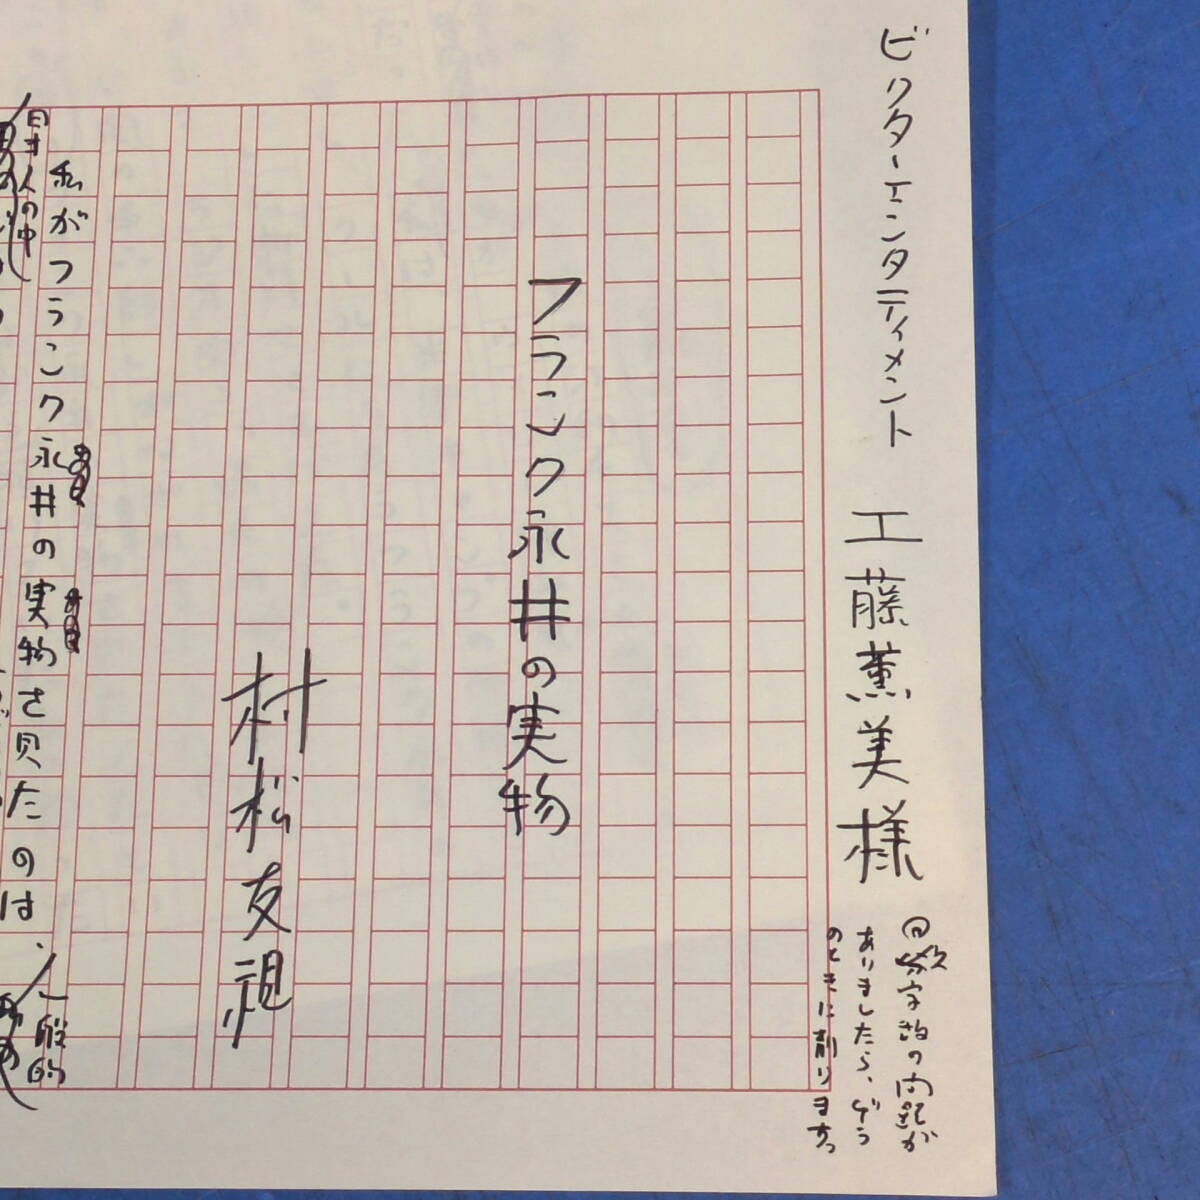 ビクターエンタティメント 工藤薫美様
字数の問題が
ありましたら、ゲラ
のときに削ります。
フランク永井の実物
村松友視
私がフランク永井の実物を見たのは、一般的
日本人の中